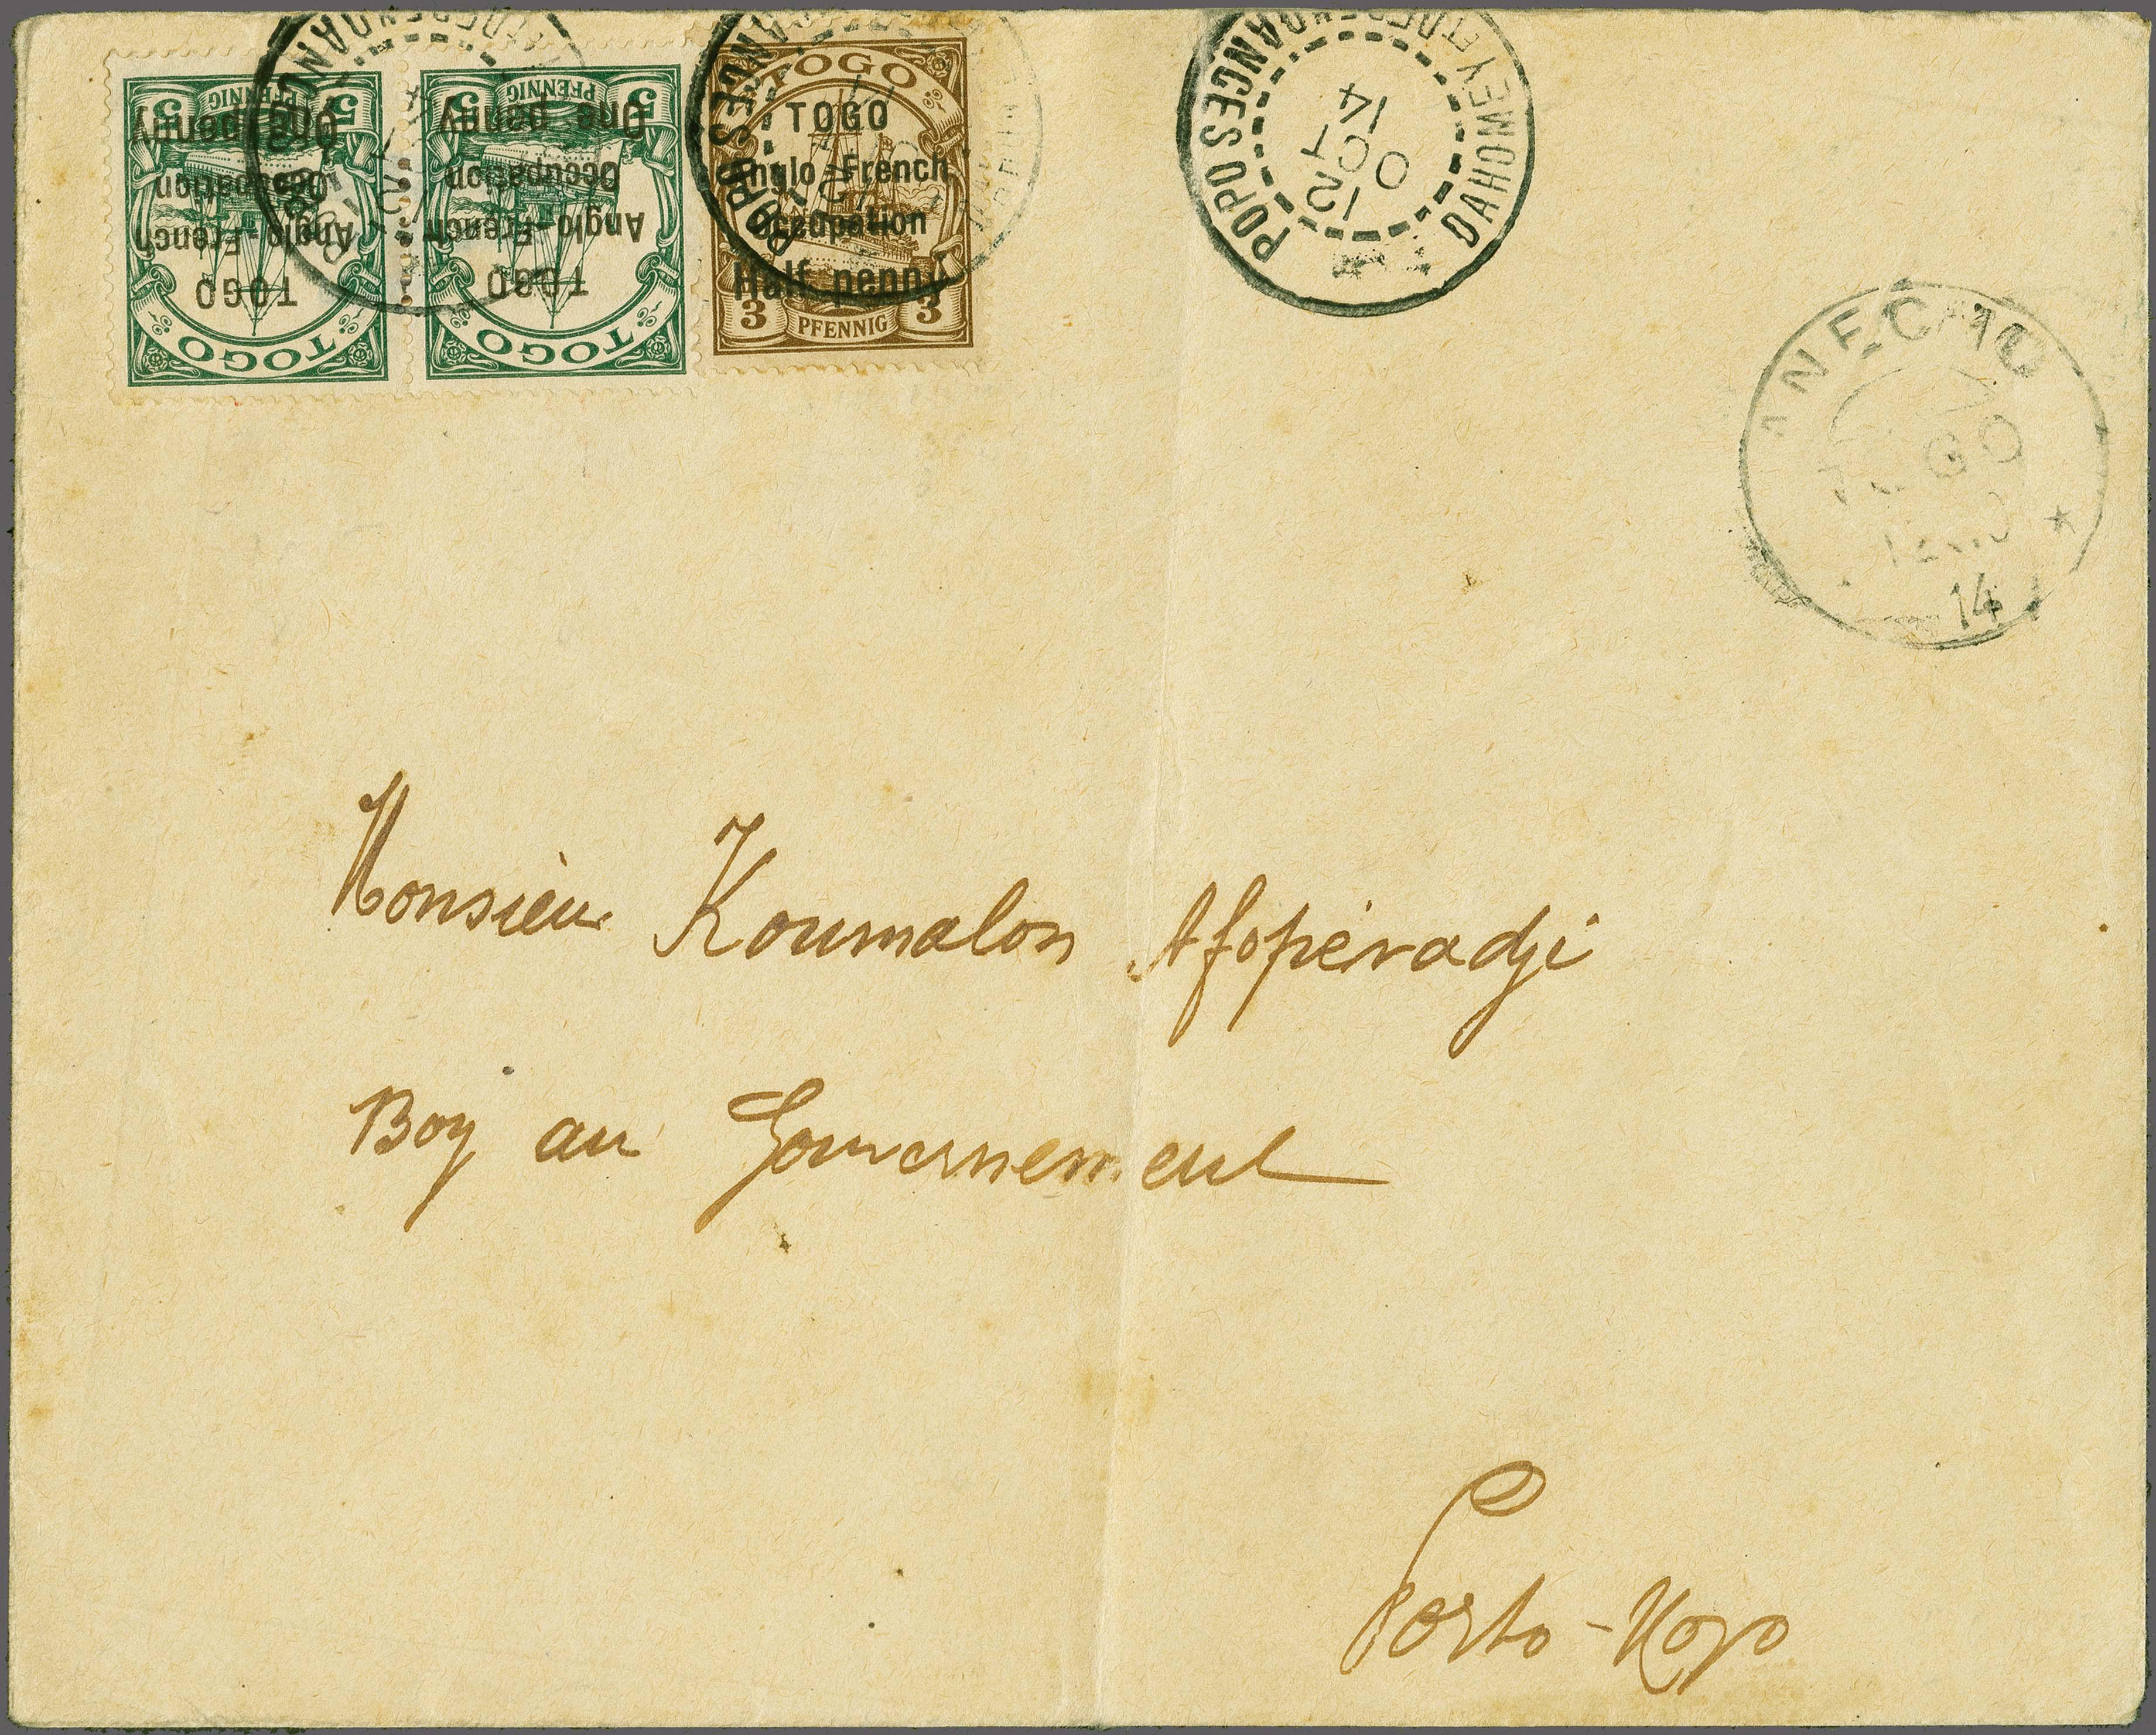 5 PFENNIG 5
One penny
Occupation
Anglo-French
TOGO
TOGO
5 PFENNIG 5
One penny
Occupation
Anglo-French
TOGO
TOGO
TOGO
TOGO
Anglo-French
Occupation
Half penny
3 PFENNIG 3
POPO
DAHOMEY ET DEPENDANCES
12
OCT
14
ANECHO
TOGO
14
Monsieur Koumalon Afopéradji
Boy au Gouvernement
Porto-Novo